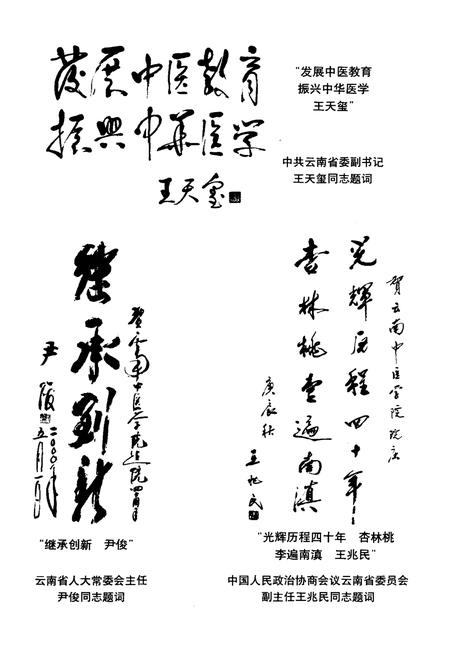 发展中医教育
振兴中华医学
王天玺
"发展中医教育
振兴中华医学
王天玺"
中共云南省委副书记
王天玺同志题词
继承创新
贺云南中医学院建院四十周年
尹俊
二〇〇〇年
五月一日
贺云南中医学院院庆
光辉历程四十年
杏林桃李遍南滇
庚辰秋
王兆民
"继承创新 尹俊"
云南省人大常委会主任
尹俊同志题词
"光辉历程四十年 杏林桃
李遍南滇 王兆民"
中国人民政治协商会议云南省委员会
副主任王兆民同志题词